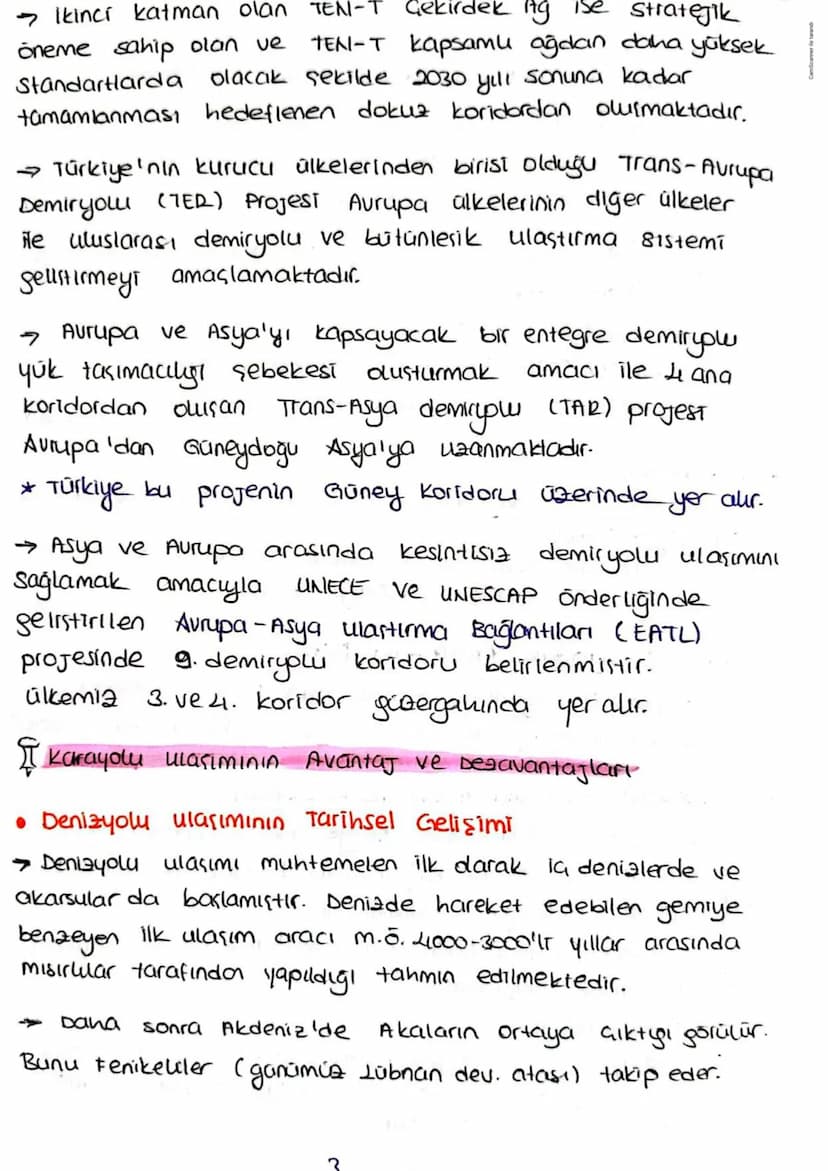 → İkinci katman olan TEN-T Çekirdek Ağ ise stratejik
öneme sahip olan ve TEN-T kapsamlı ağdan daha yüksek
standartlarda olacak şekilde 2030 yılı sonuna kadar
tamamlanması hedeflenen dokuz koridordan oluşmaktadır.
→ Türkiye'nin kurucu ülkelerinden birisi olduğu Trans-Avrupa
Demiryolu (TER) Projesi Avrupa ülkelerinin diğer ülkeler
ile uluslarası demiryolu ve bütünleşik ulaştırma sistemi
geliştirmeyi amaçlamaktadır.
→ Avrupa ve Asya'yı kapsayacak bir entegre demiryolu
yük taşımacılığı şebekesi oluşturmak amacı ile 4 ana
koridordan oluşan Trans-Asya demiryolu (TAR) projesi
Avrupa'dan Güneydoğu Asya'ya uzanmaktadır.
* Türkiye bu projenin Güney Koridoru üzerinde yer alır.
→ Asya ve Avrupa arasında kesintisiz demiryolu ulaşımını
sağlamak amacıyla UNECE ve UNESCAP önderliğinde
geliştirilen Avrupa-Asya ulaştırma Bağlantıları (EATL)
projesinde 9. demiryolu koridoru belirlenmiştir.
ülkemiz 3. ve 4. koridor güzergahında yer alır.
Karayolu ulaşımının Avantaj ve Dezavantajları
• Denizyolu ulaşımının Tarihsel Gelişimi
→ Denizyolu ulaşımı muhtemelen ilk olarak iç denizlerde ve
akarsular da başlamıştır. Denizde hareket edebilen gemiye
benzeyen ilk ulaşım aracı m.ö. 4000-3000'li yıllar arasında
mısırlılar tarafından yapıldığı tahmin edilmektedir.
→ Daha sonra Akdeniz'de Akaların ortaya çıktığı görülür.
Bunu Fenikeliler (günümüz Lübnan dev. atası) takip eder.
3
CamScanner ile tarandı